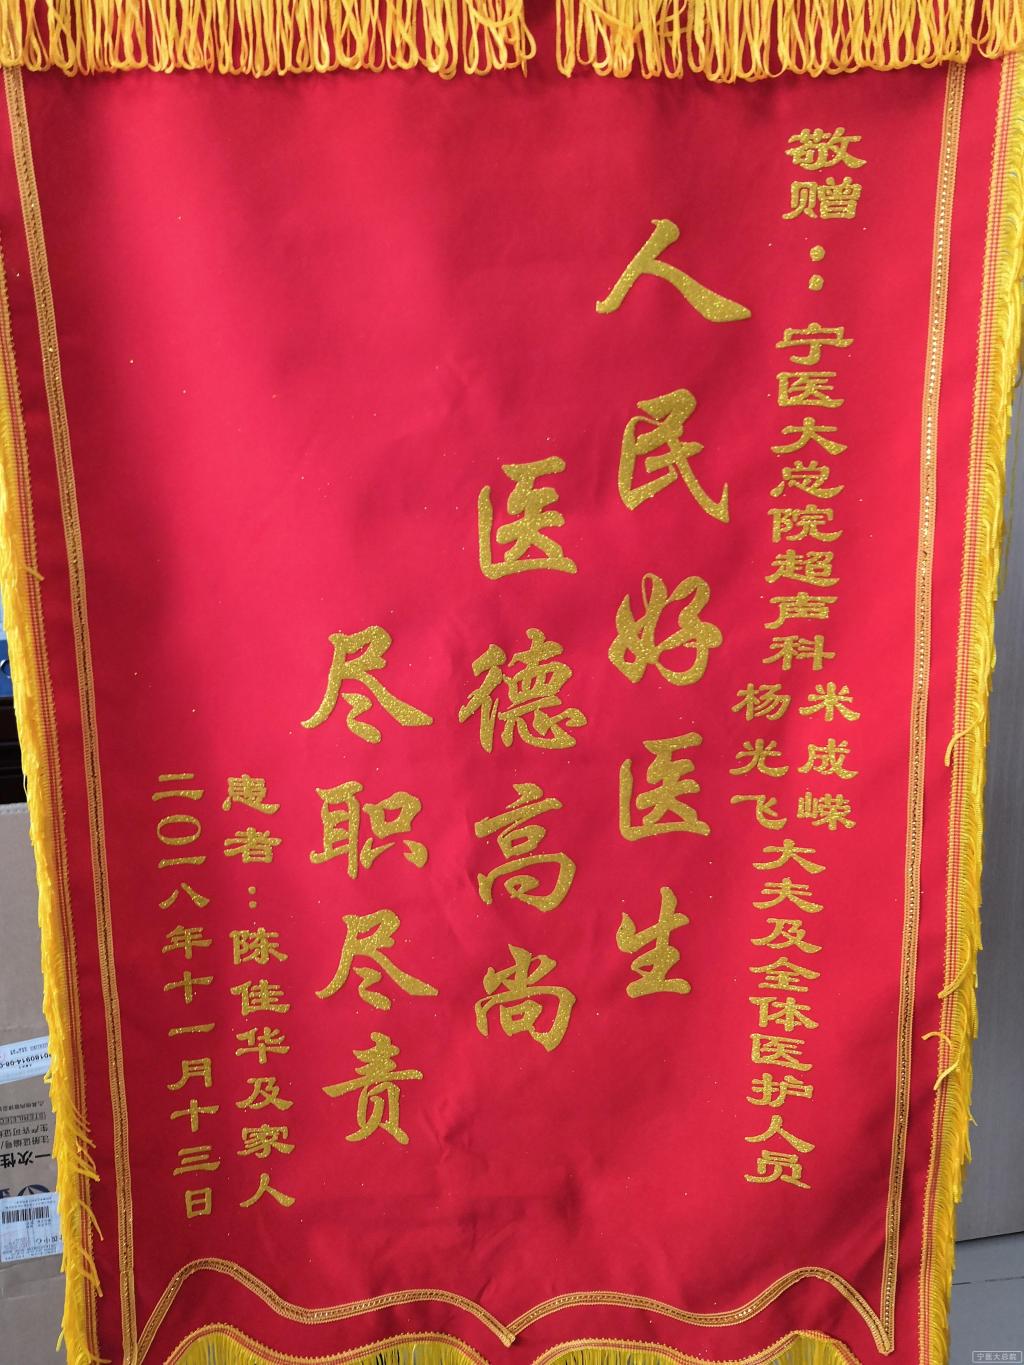 敬赠：宁医大总院超声科 米成嵘 杨光飞 大夫及全体医护人员
人民好医生
医德高尚
尽职尽责
患者：陈佳华及家人
二〇一八年十一月十三日
一次性
宁医大总院